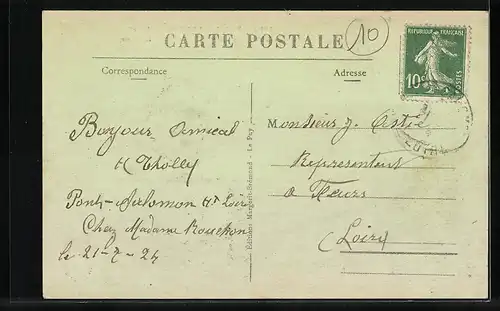 10
CARTE POSTALE
REPUBLIQUE FRANÇAISE
10c
POSTES
Correspondance
Adresse
Bonjour Amical
H Tholly
Pont-Salomon Hte Loire
Chez Madame Rouchon
le 21-7-24
Editions Margerit-Brémond - Le Puy
Monsieur J. Astic
Représentant
a Feurs
(Loire)
LOIRE